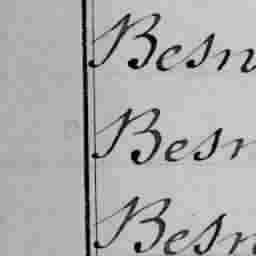 Besn
Besn
Besn